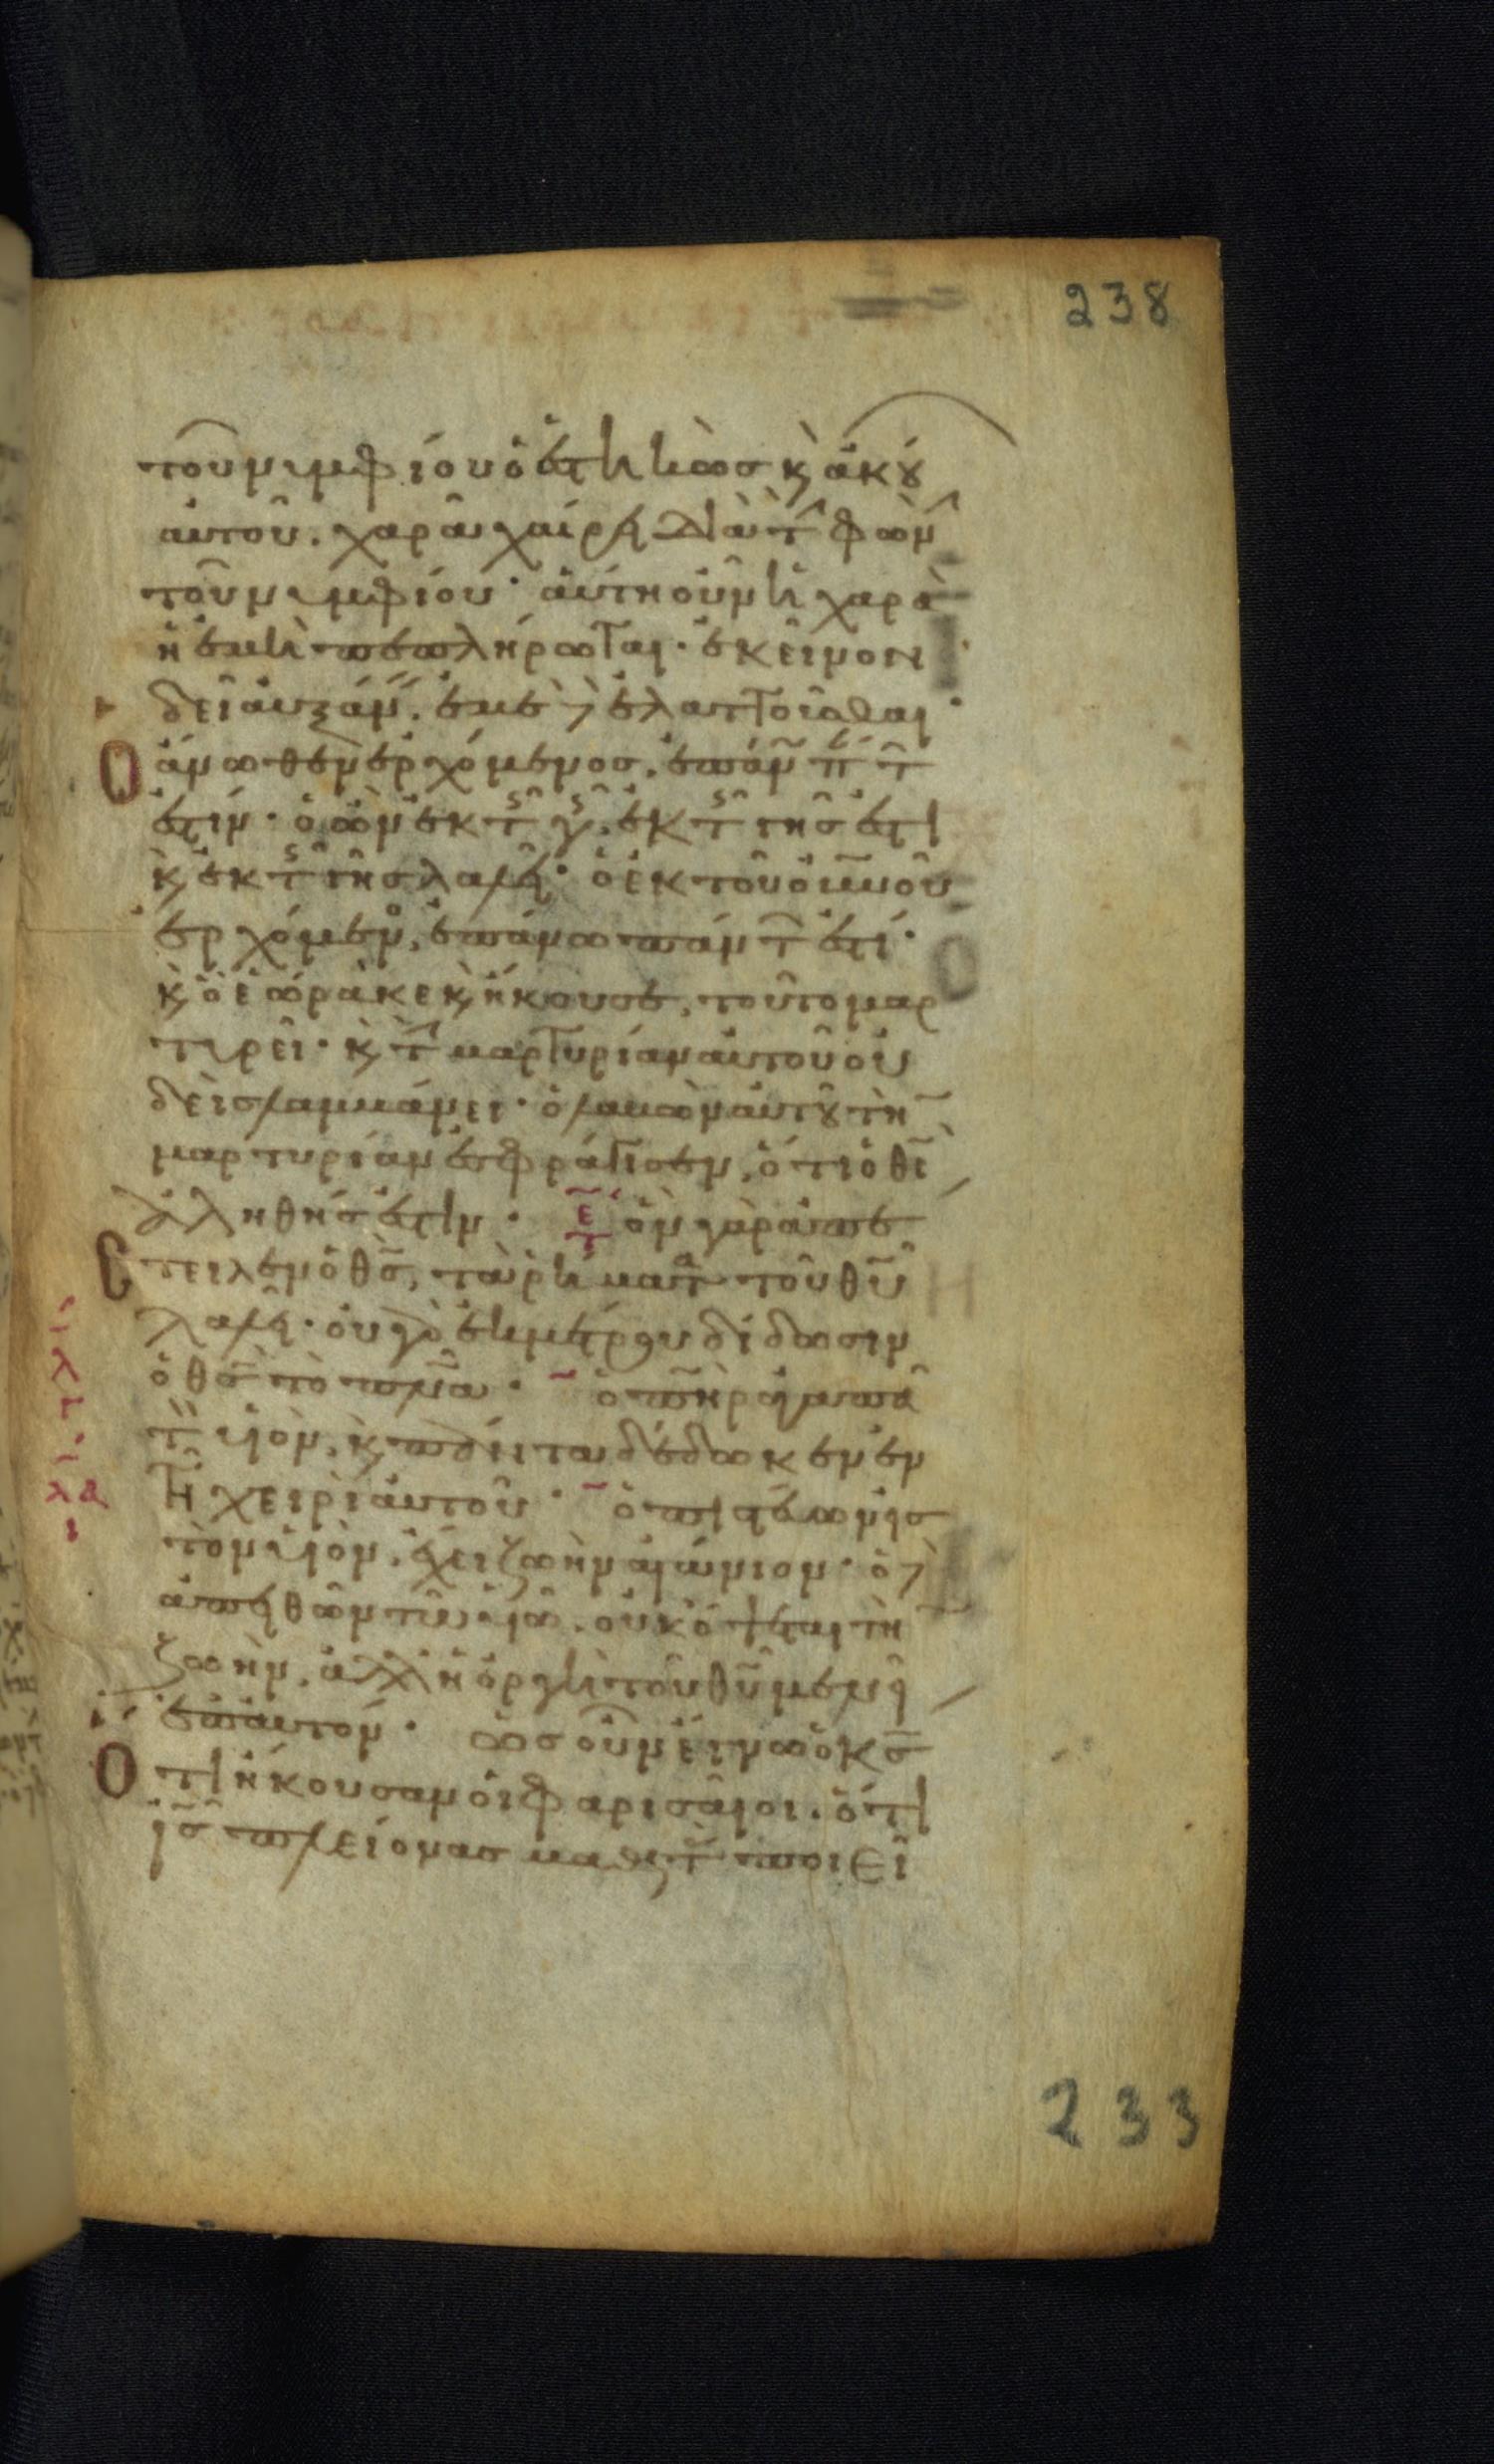 238
τοῦ νυμφίου ὁ ἑστηκὼς κ(αὶ) ἀκού(ων)
αὐτοῦ. χαρᾶ χαίρει διὰ τ(ὴν) φων(ὴν)
τοῦ νυμφίου· αὕτη οὖν ἡ χαρὰ
ἡ ἐμὴ πεπλήρωται· ἐκεῖνον
δεῖ αὐξάν(ειν). ἐμὲ δ(ὲ) ἐλαττοῦσθαι·
Ὁ ἄνωθεν ἐρχόμενος, ἐπάν(ω) π(άν)τ(ων)
ἐστίν· ὁ ὢν ἐκ τ(ῆς) γ(ῆς). ἐκ τ(ῆς) γῆς ἐστι
κ(αὶ) ἐκ τ(ῆς) γῆς λαλεῖ· ὁ ἐκ τοῦ οὐ(ρα)νοῦ
ἐρχόμεν(ος), ἐπάνω πάντ(ων) ἐστί·
κ(αὶ) ὃ ἑώρακε κ(αὶ) ἤκουσε, τοῦτο μαρ
τυρεῖ· κ(αὶ) τ(ὴν) μαρτυρίαν αὐτοῦ οὐ
δεὶς λαμβάνει· ὁ λαβὼν αὐτοῦ τὴν
μαρτυρίαν ἐσφράγισεν, ὅτι ὁ θ(εὸ)ς
ἀληθής ἐστιν· ὃν γὰρ ἀπέ
στειλεν ὁ θ(εό)ς, τὰ ῥήματα τοῦ θ(εο)ῦ
λαλεῖ· οὐ γ(ὰρ) ἐκ μέτρου δίδωσιν
ὁ θ(εὸ)ς τὸ πν(εῦμ)α· ὁ π(ατ)ὴρ ἀγαπᾶ
τ(ὸν) υἱὸν, κ(αὶ) πάντα δέδωκεν ἐν
τῆ χειρὶ αὐτοῦ· ὁ πιστεύων εἰς
τὸν υἱὸν, ἔχει ζωὴν αἰώνιον· ὁ δ(ὲ)
ἀπειθῶν τῶ υἱῶ. οὐκ ὄψεται τὴν
ζωὴν, ἀλλ' ἡ ὀργὴ τοῦ θ(εο)ῦ μένει
ἐπ' αὐτόν· ὡς οὖν ἔγνω ὁ κ(ύριο)ς
Ὅτι ἤκουσαν οἱ φαρισαῖοι. ὅτι
ἰ(ησοῦ)ς πλείονας μαθητ(ὰς) ποιεῖ
233